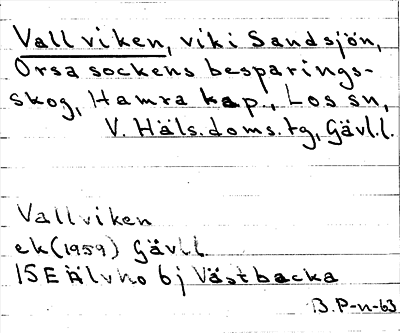 Vallviken, vik i Sandsjön,
Orsa sockens besparings-
skog, Hamra kap., Los sn,
V. Häls. doms. tg, Gävl.l.
Vallviken
ek (1959) Gävl l
15E Älvho 6j Västbacka
B.P-n-63